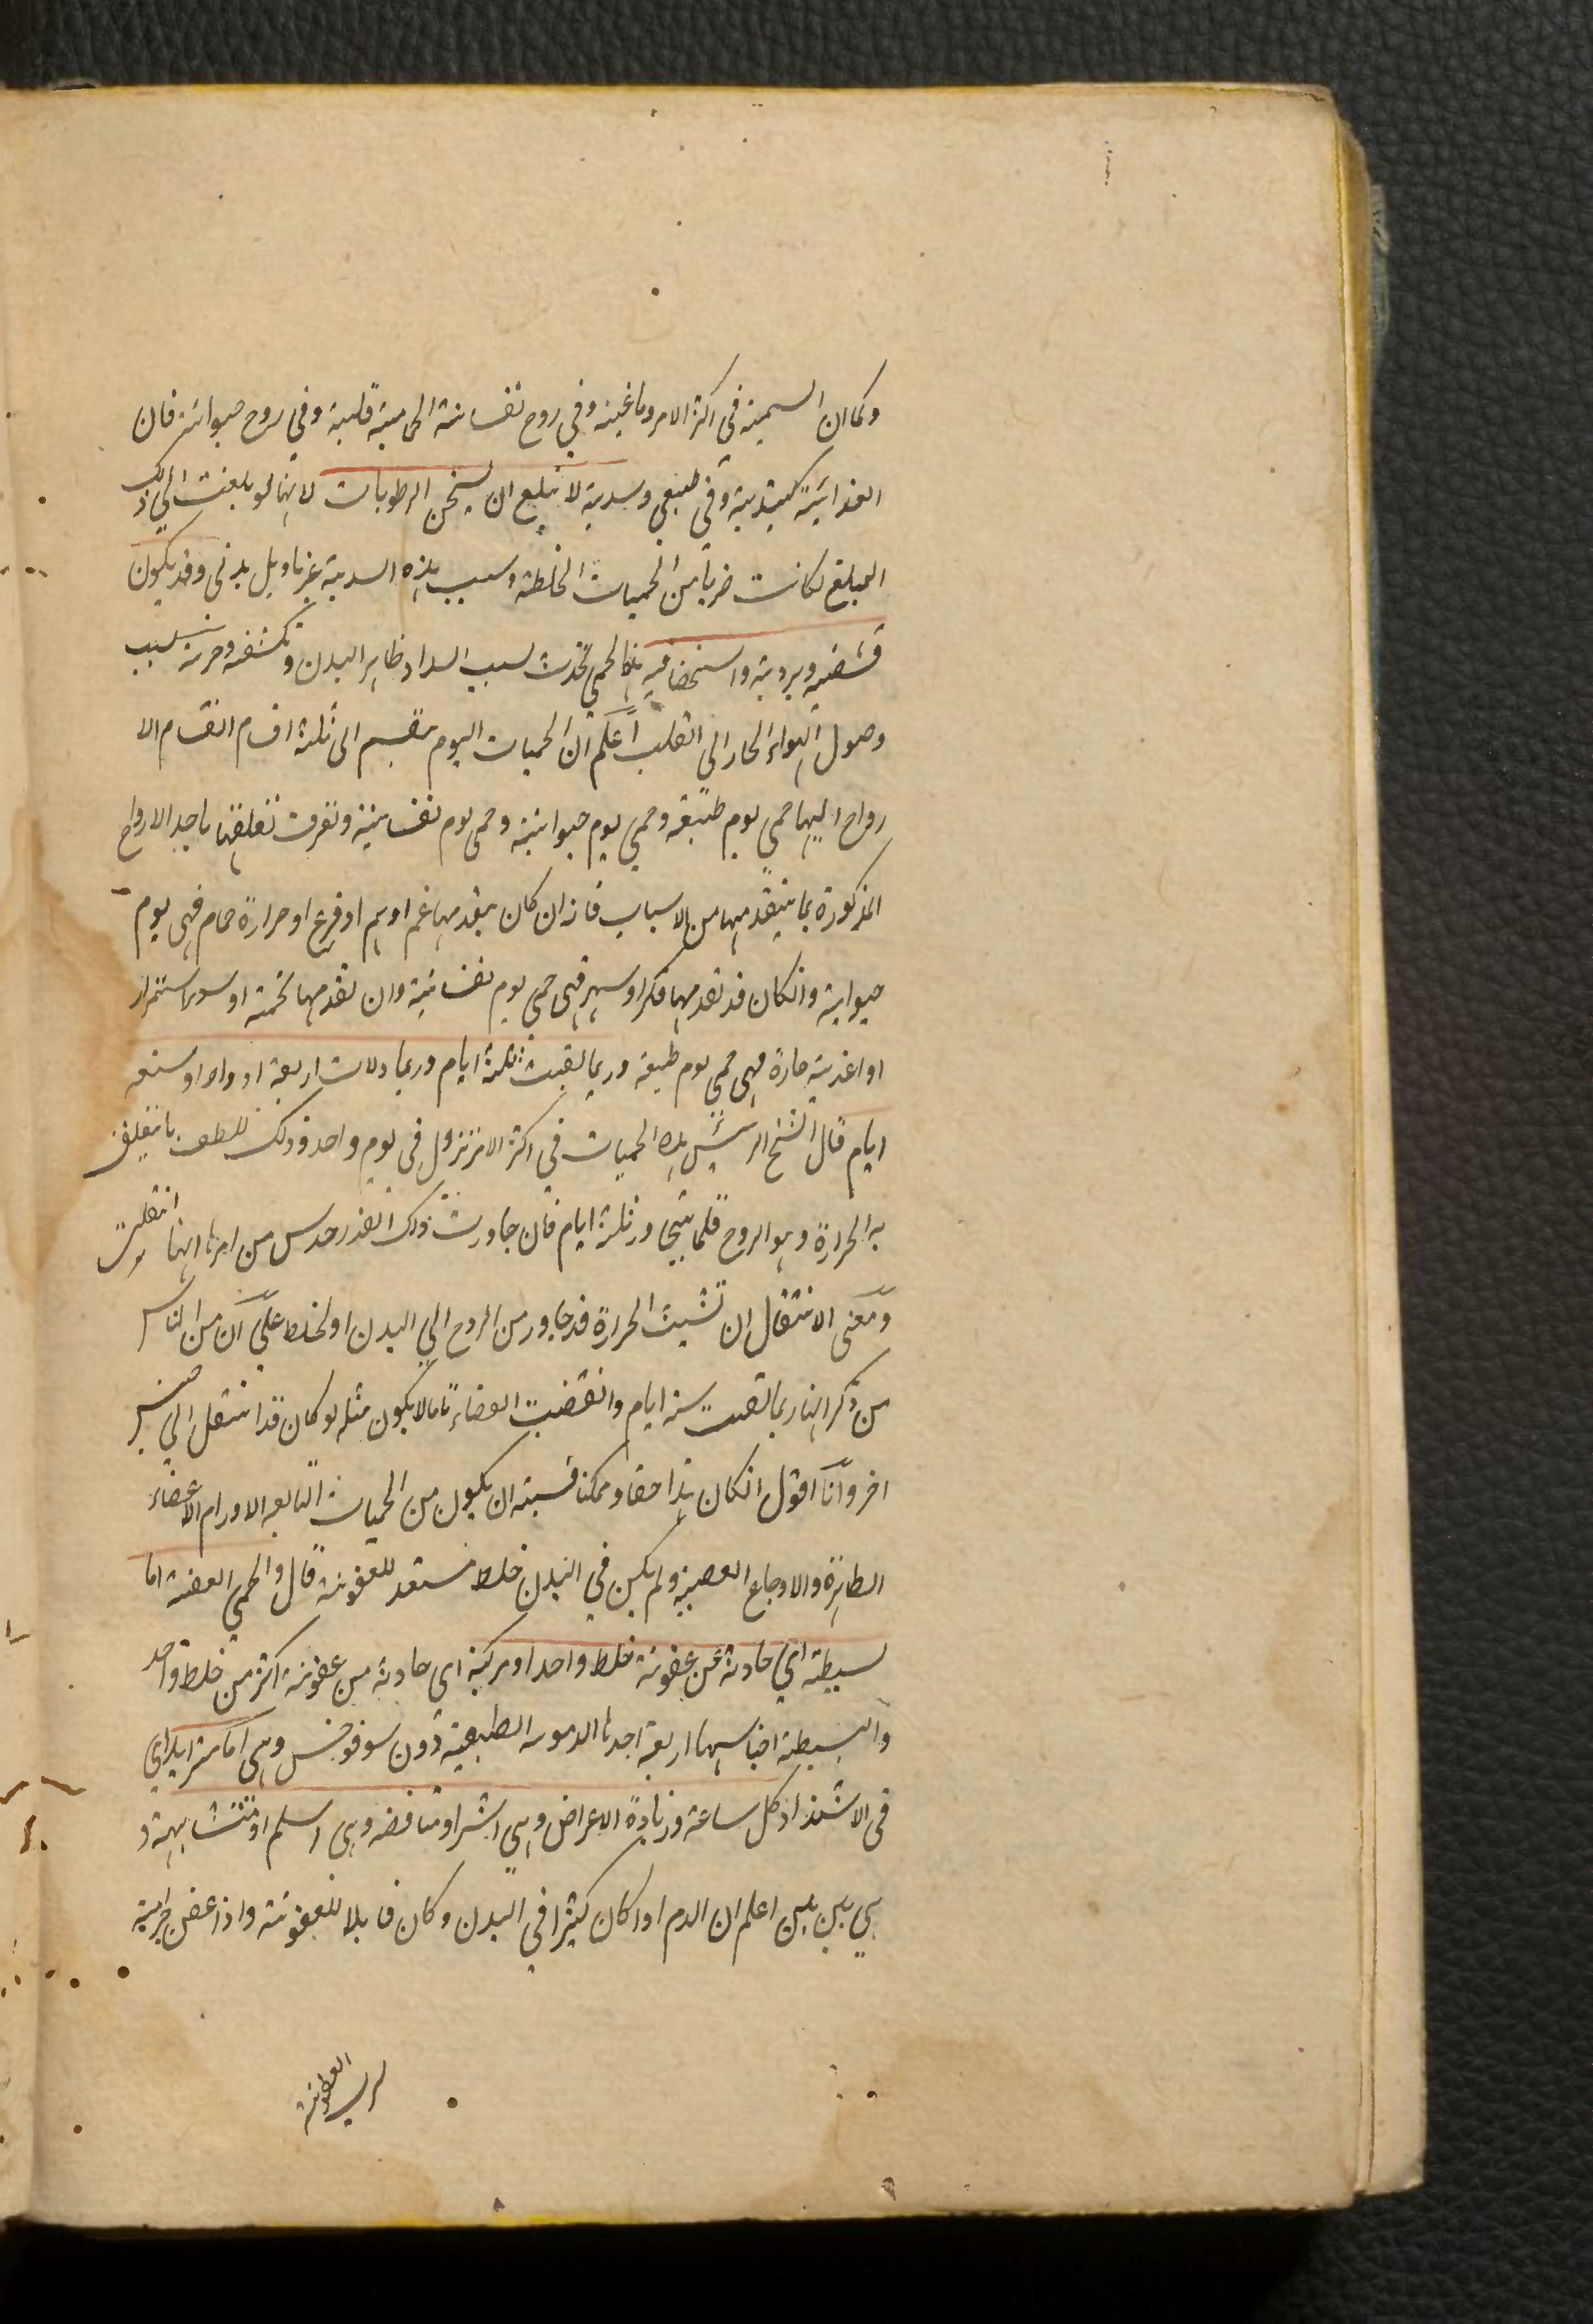 وكما ان السمينه فى اكثر الامر دماغية وفي روح نفسانية الحمامية قلبية وفي روح حيوانية فان
الغذائية كبدية وفي طبيعي وسدية لا تبلغ ان يسخن الرطوبات لانها لو بلغت الي ذلك
المبلغ لكانت ضربا من الحميات الخلطية وسبب هذه السدية غذاء بل بدني وقد يكون
قشفية وبردية واستحصافية هذا الحمي تحدث بسبب انسداد ظاهر البدن وتكشفه وحرية بسبب
وصول الهواء الحار الي القلب اعلم ان الحميات اليوم تنقسم الى ثلثة اقسام انقسام الا
رواح اليها حمي يوم طبيعية وحمي يوم حيوانية وحمى يوم نفسانية وتعرف تعلقها باحد الارواح
المذكورة بما يتقدمها من الاسباب فانه ان كان يتقدمها غم او هم او فزع او حرارة حمام فهي يوم
حيوانية وانكان قد تقدمها فكر او سهر فهي حمى يوم نفسانية وان تقدمها تخمة او سوء استمراء
او اغذية حارة فهي حمي يوم طبيعية وربما بقيت ثلثة ايام وربما دلات اربعة ادوار او سبعة
ايام قال الشيخ الرئيس هذه الحميات في اكثر الامر تزول في يوم واحد وذلك للطف ما يتعلق
به الحرارة وهو الروح قلما يتجاوز ثلثة ايام فان جاوزت ذلك القدر حدس من امرها انها انتقلت
ومعنى الانتقال ان تشبث الحرارة قد جاوز من الروح الي البدن او لخلط علي ان من الناس
من ذكر انها ربما بقيت ستة ايام وانقضت انقضاء تاما لا يكون مثله لو كان قد انتقل الي جنس
اخر وانا اقول انكان هذا حقا وممكنا فسببه ان يكون من الحميات التابعه الاورام الاعضاء
الظاهرة والاوجاع العصبية ولم يكن في البدن خلط مستعد للعفونة قال والحمي العفنة اما
بسيطة اي حادثة عن عفونة خلط واحد او مركبة اي حادثة من عفونة اكثر من خلط واحد
والبسيطة اجناسها اربعة احدها الدموية المطبقة دون سونوخس وهي اما متزايد اي
فى الاشتداد كل ساعة وزيادة الاعراض وهي اشر او متناقصه وهى اسلم او متشابهة و
هي بين بين اعلم ان الدم اذا كان كثيرا في البدن وكان قابلا للعفونة واذا عفن جزئية